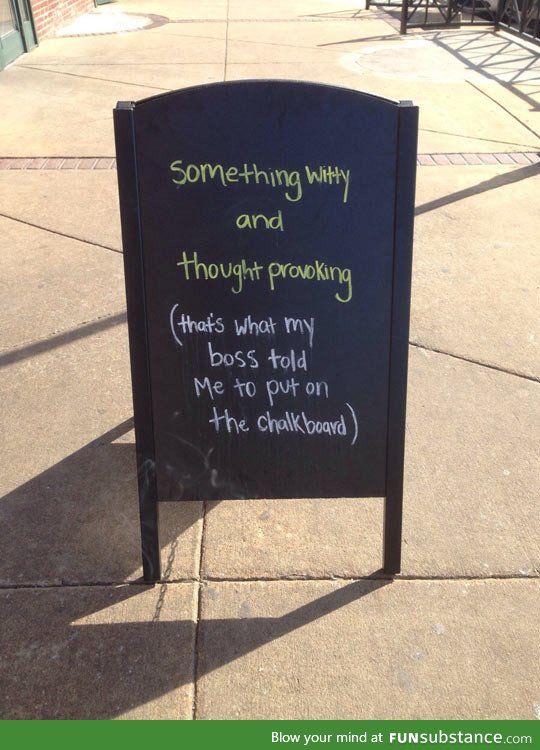 something witty
and
thought provoking
(that's what my
boss told
Me to put on
the chalkboard)
Blow your mind at FUNsubstance.com